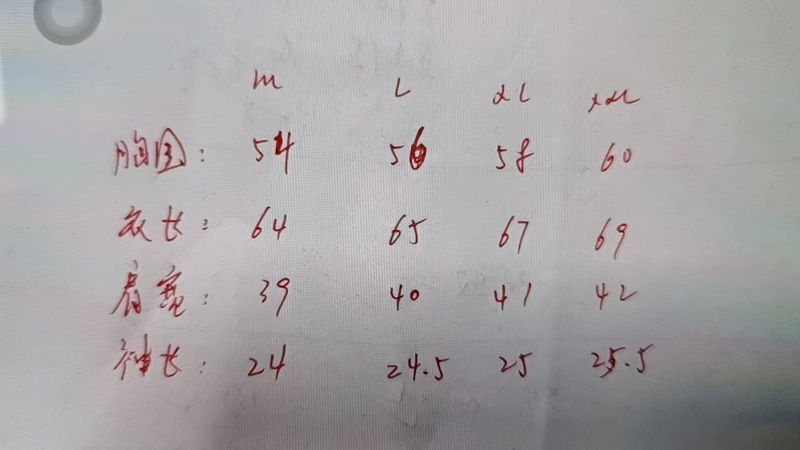 m L XL XXL
胸围: 54 56 58 60
衣长: 64 65 67 69
肩宽: 39 40 41 42
袖长: 24 24.5 25 25.5